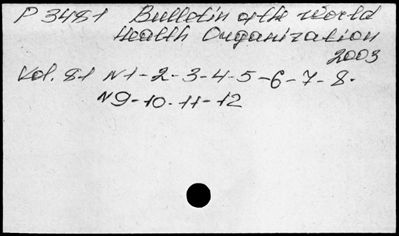 P 3481 Bulletin of the World
Health Organization
2003
Vol. 81 N1-2-3-4-5-6-7-8-
N9-10-11-12